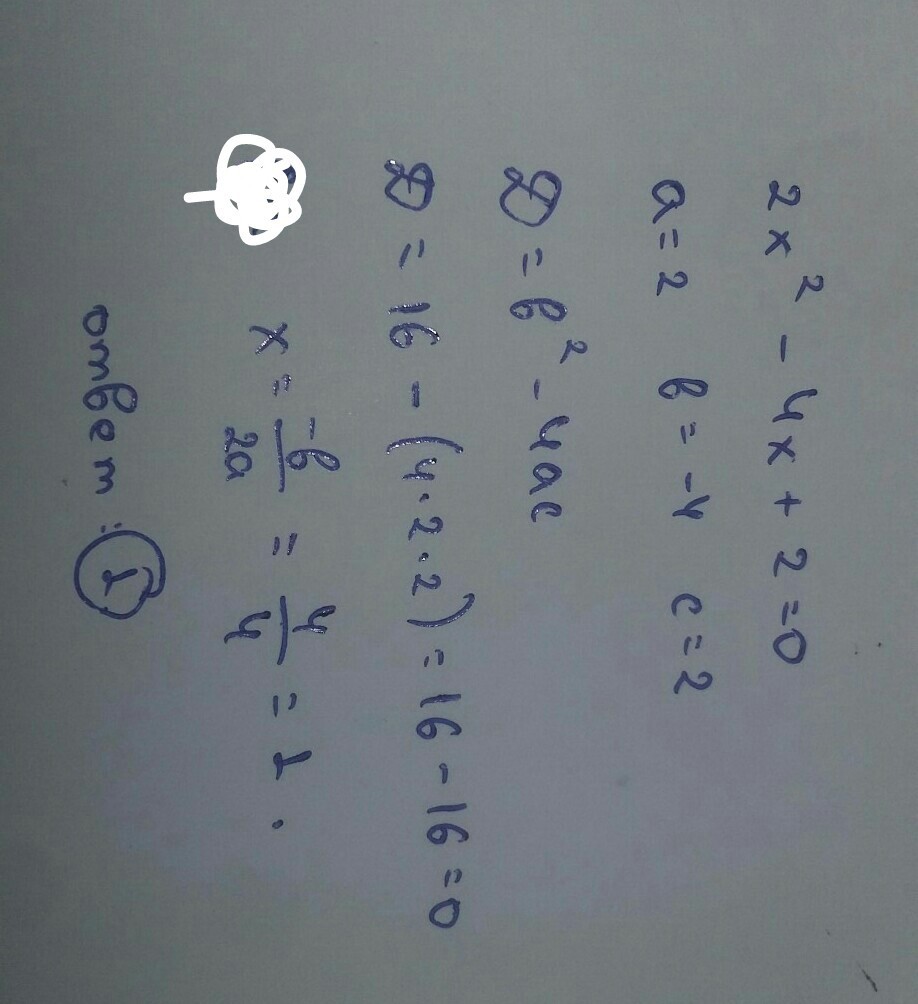 2x² - 4x + 2 = 0
a = 2 в = -4 c = 2
D = в² - 4ac
D = 16 - (4·2·2) = 16 - 16 = 0
x = -в/2a = 4/4 = 1.
ответ: 1